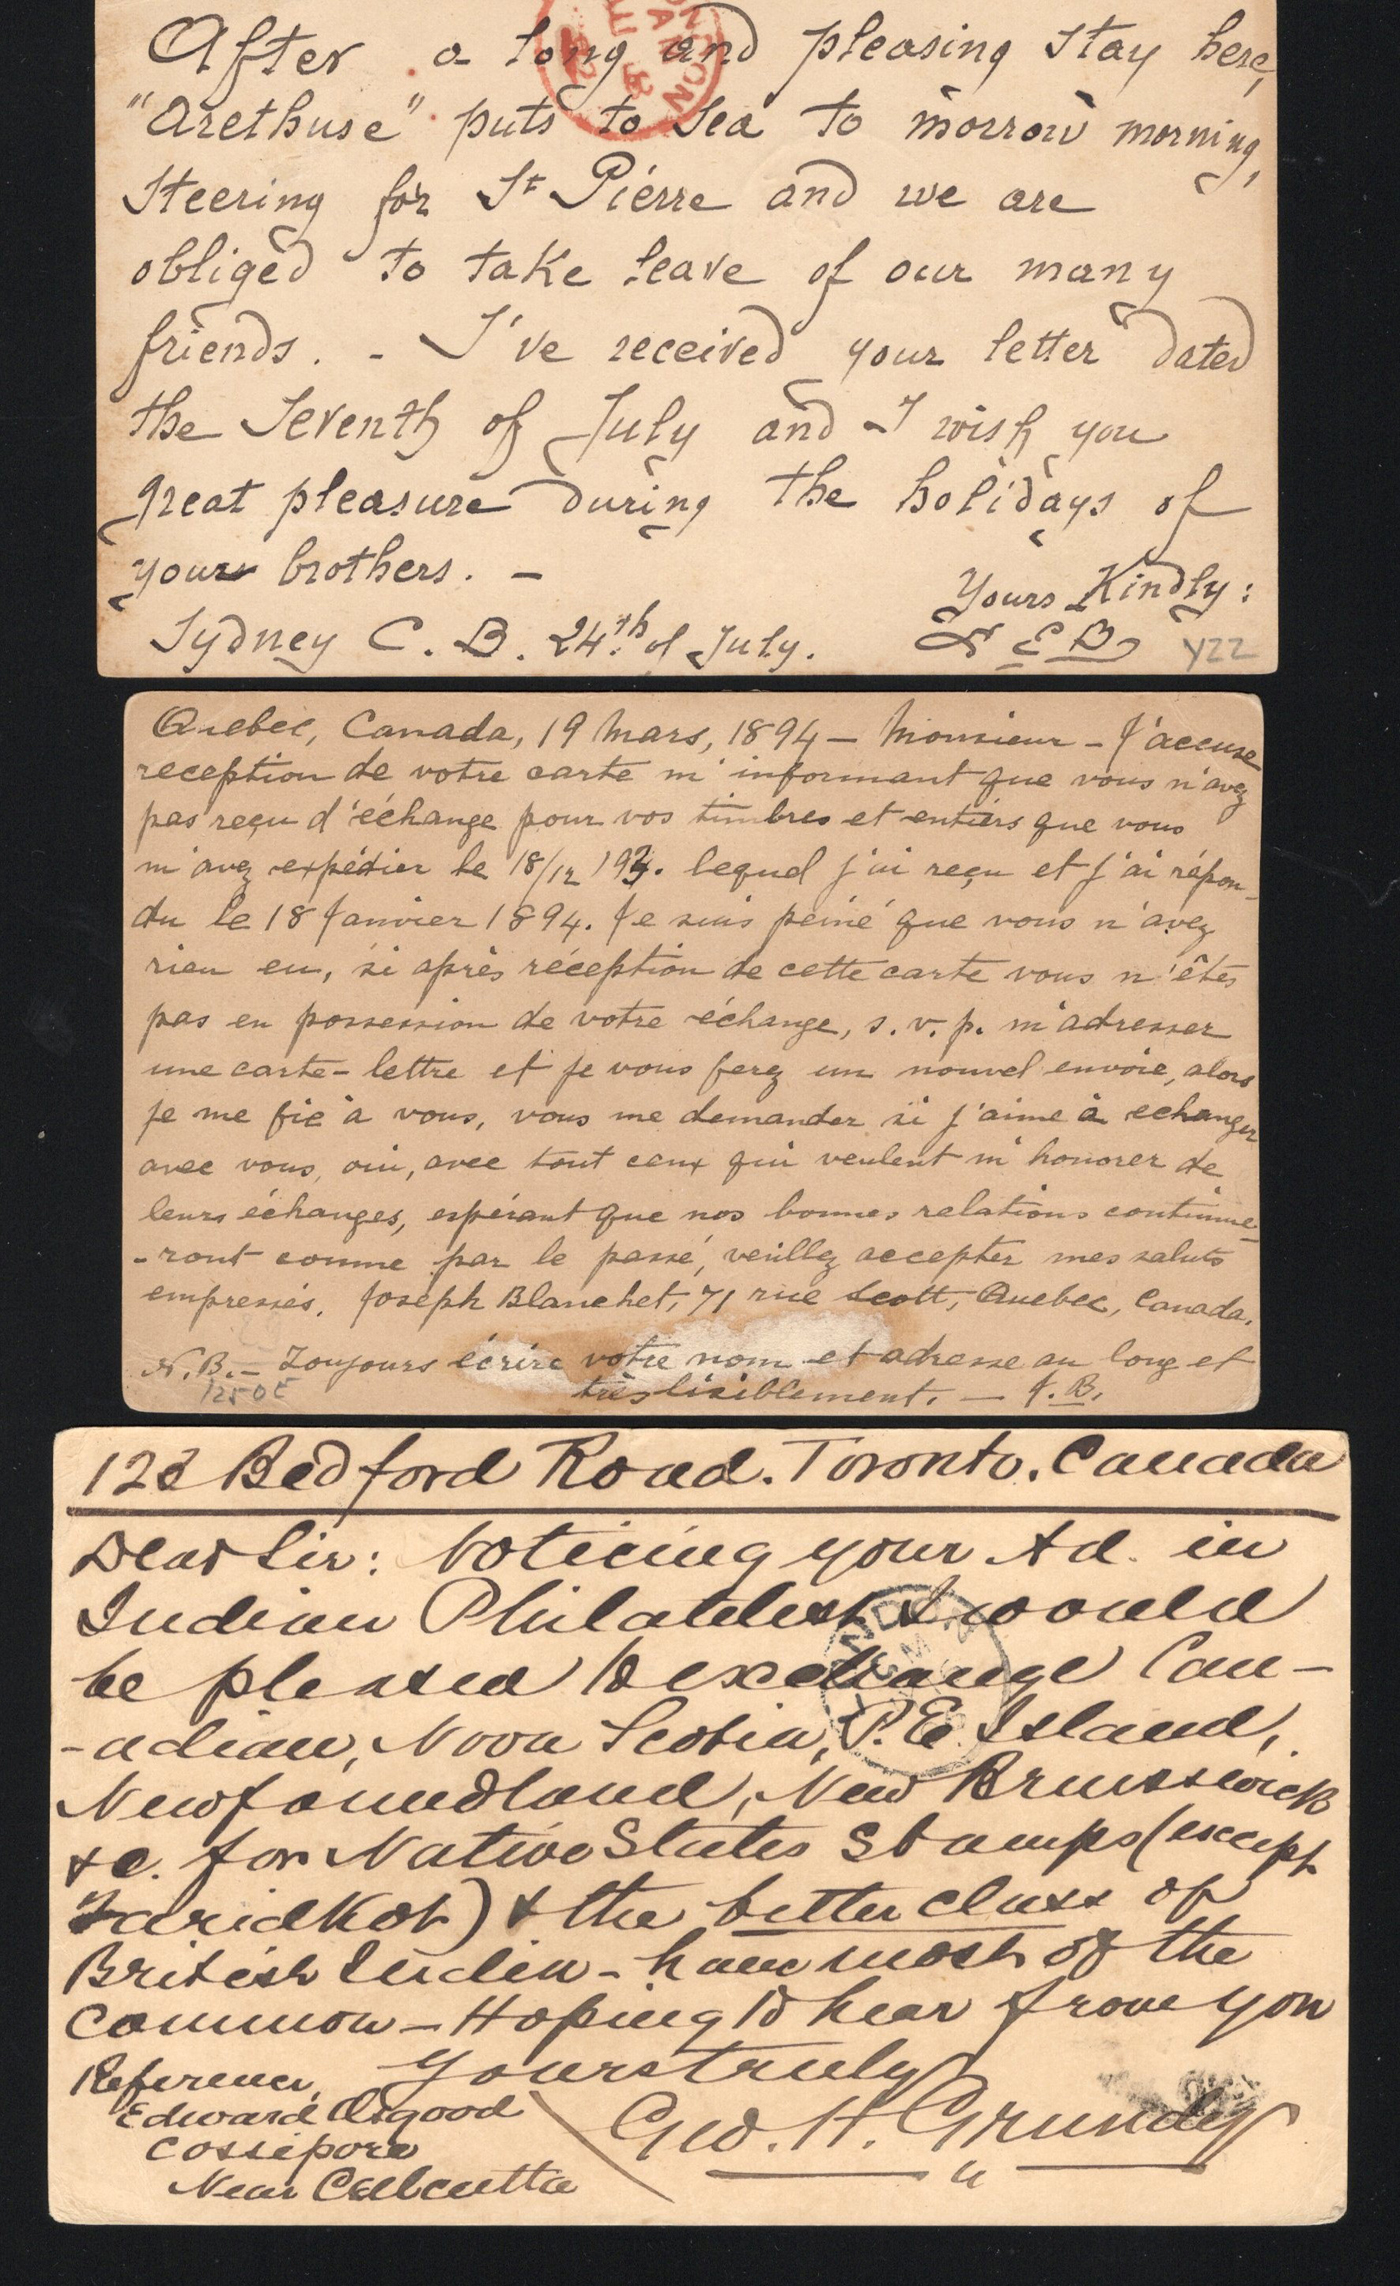 After a long and pleasing stay here,
"Arethuse" puts to sea to morrow morning,
Steering for St Pierre and we are
obliged to take leave of our many
friends. - I've received your letter dated
the Seventh of July and I wish you
great pleasure during the holidays of
your brothers. -
Yours Kindly:
Sydney C. B. 24th of July.
Y22
Quebec, Canada, 19 Mars, 1894 — Monsieur - J'accuse
reception de votre carte m'informant que vous n'avez
pas reçu d'échange pour vos timbres et entiers que vous
m'avez expédier le 18/12 193. lequel j'ai reçu et j'ai répon-
du le 18 Janvier 1894. Je suis peiné que vous n'avez
rien eu, si après réception de cette carte vous n'êtes
pas en possession de votre échange, s. v. p. m'adresser
une carte-lettre et je vous ferez un nouvel envoie, alors
je me fie à vous, vous me demander si j'aime à echanger
avec vous, oui, avec tout ceux qui veulent m'honorer de
leurs échanges, espérant que nos bonnes relations continue-
-ront comme par le passé, veuillez accepter mes saluts
empressés. Joseph Blanchet, 71 rue Scott, Quebec, Canada.
N.B. — Toujours écrire votre nom et adresse au long et
très lisiblement. — J. B.
123 Bedford Road. Toronto. Canada
Dear Sir: Noticing your Ad. in
Indian Philatelist I would
be pleased to exchange Can-
-adian, Nova Scotia, P.E. Island,
Newfoundland, New Brunsswick
&c. for Native States Stamps (except
Faridkot) & the better class of
British India - have most of the
common — Hoping to hear from you
Yours truly
Geo. H. Grundy
Reference,
Edward Osgood
Cossipore
Near Calcutta